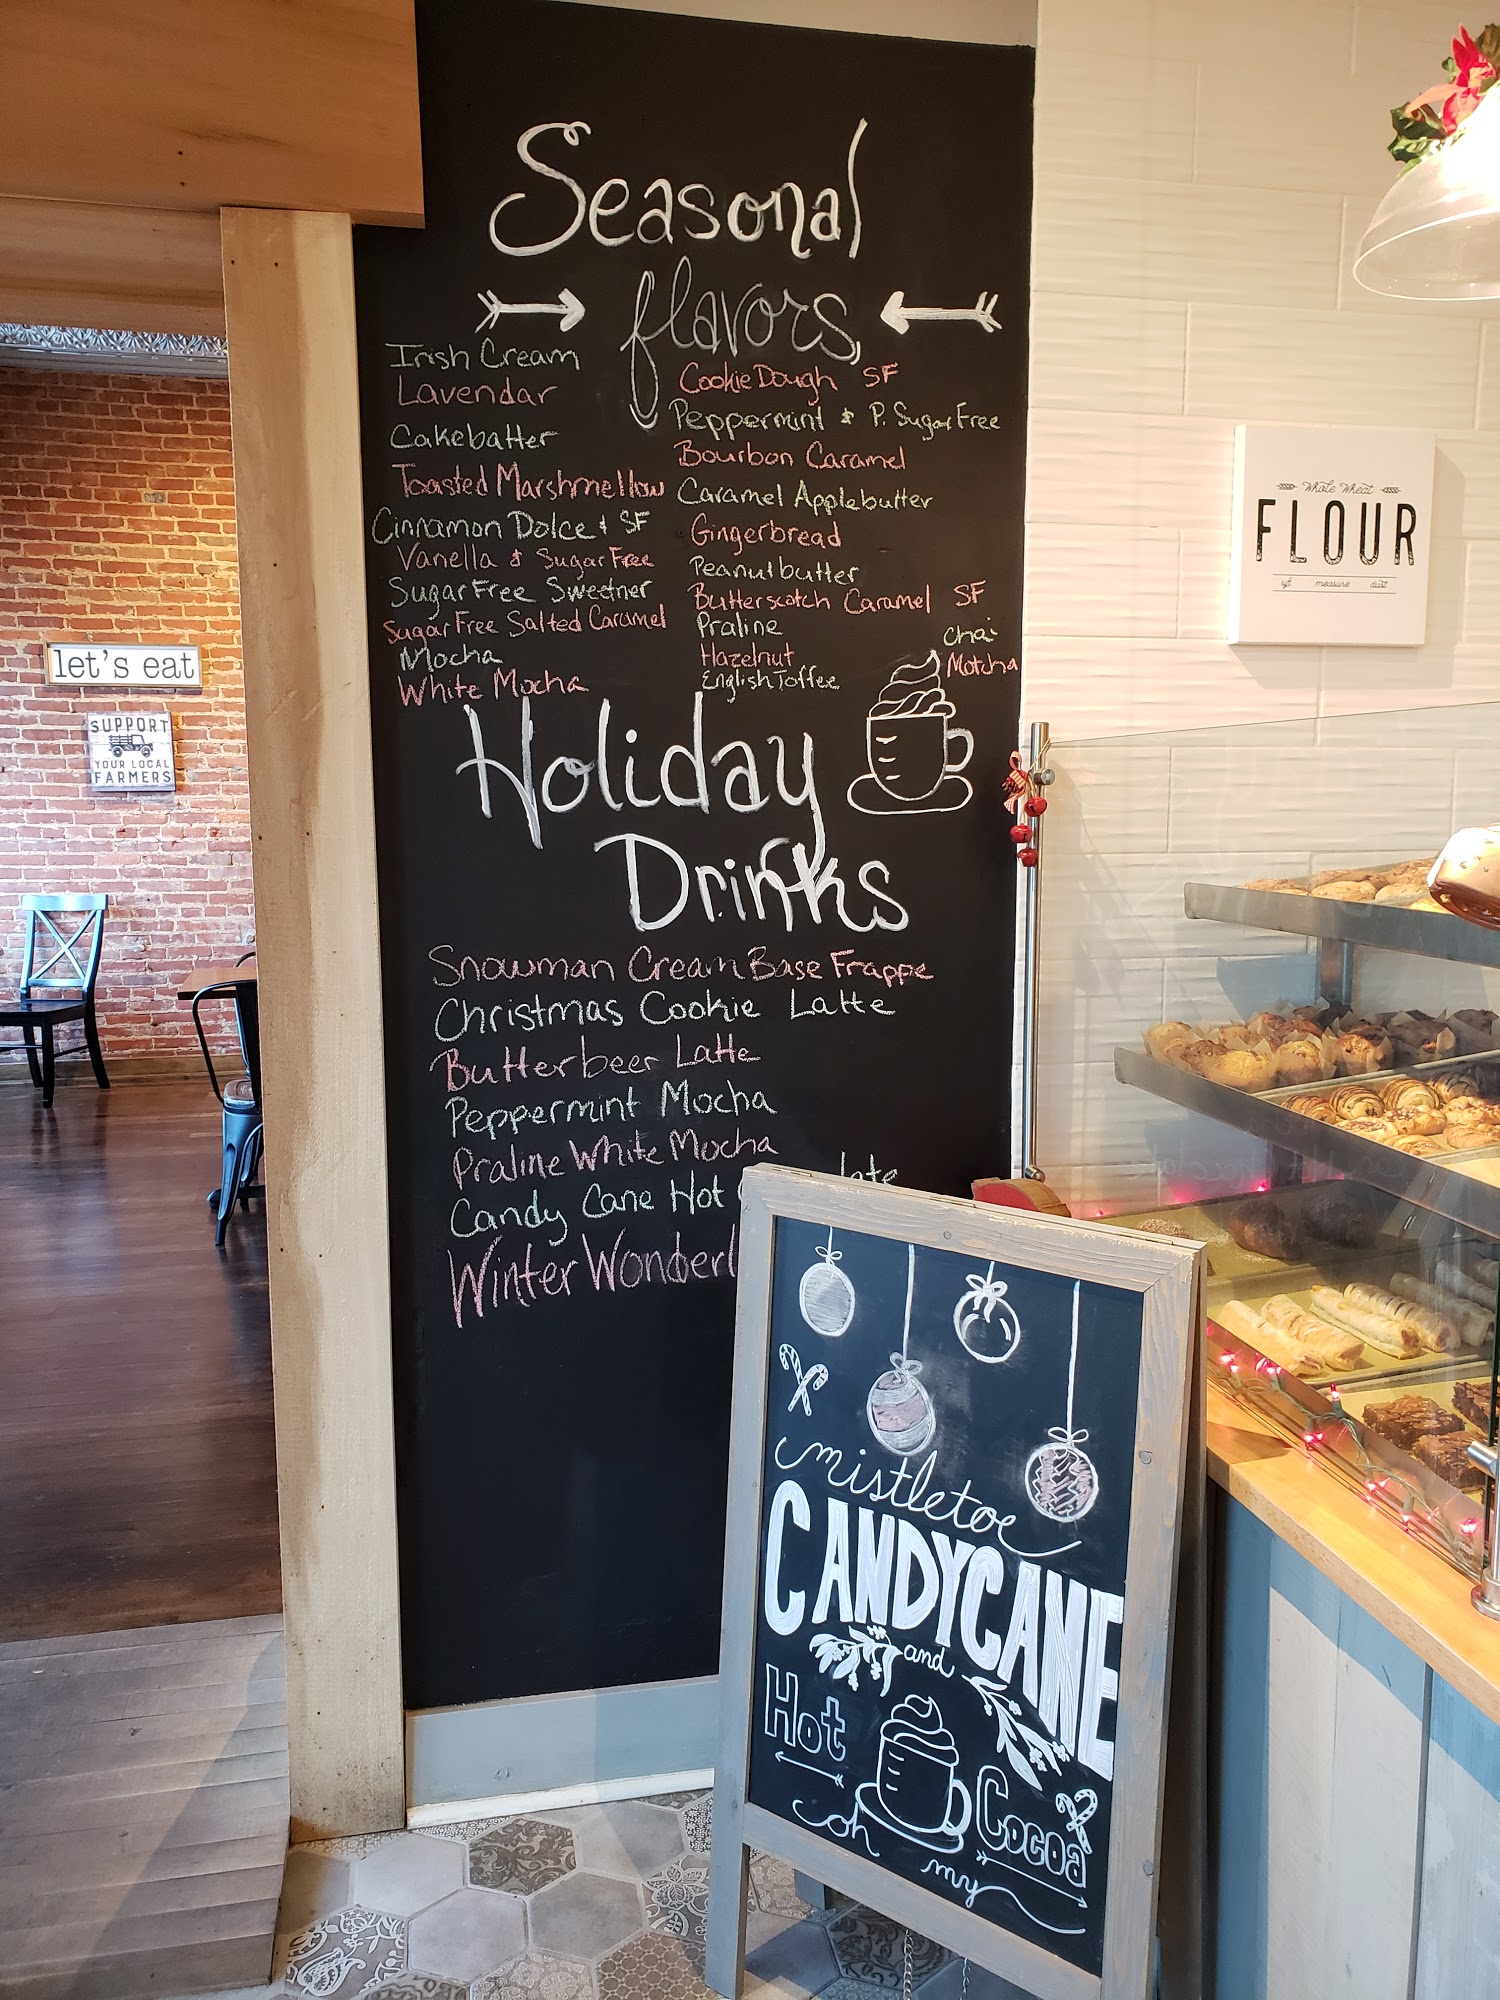 Seasonal
flavors
Irish Cream
Lavendar
Cakebatter
Toasted Marshmellow
Cinnamon Dolce & SF
Vanella & Sugar Free
Sugar Free Sweetner
Sugar Free Salted Caramel
Mocha
White Mocha
Cookie Dough SF
Peppermint & P. Sugar Free
Bourbon Caramel
Caramel Applebutter
Gingerbread
Peanutbutter
Butterscotch Caramel SF
Praline
Hazelnut
English Toffee
Chai
Motcha
Holiday
Drinks
Snowman Cream Base Frappe
Christmas Cookie Latte
Butterbeer Latte
Peppermint Mocha
Praline White Mocha
Candy Cane Hot
Winter
mistletoe
CANDYCANE
and
Hot
Cocoa
oh
my
Whole Wheat
FLOUR
sift measure dust
let's eat
SUPPORT
YOUR LOCAL
FARMERS